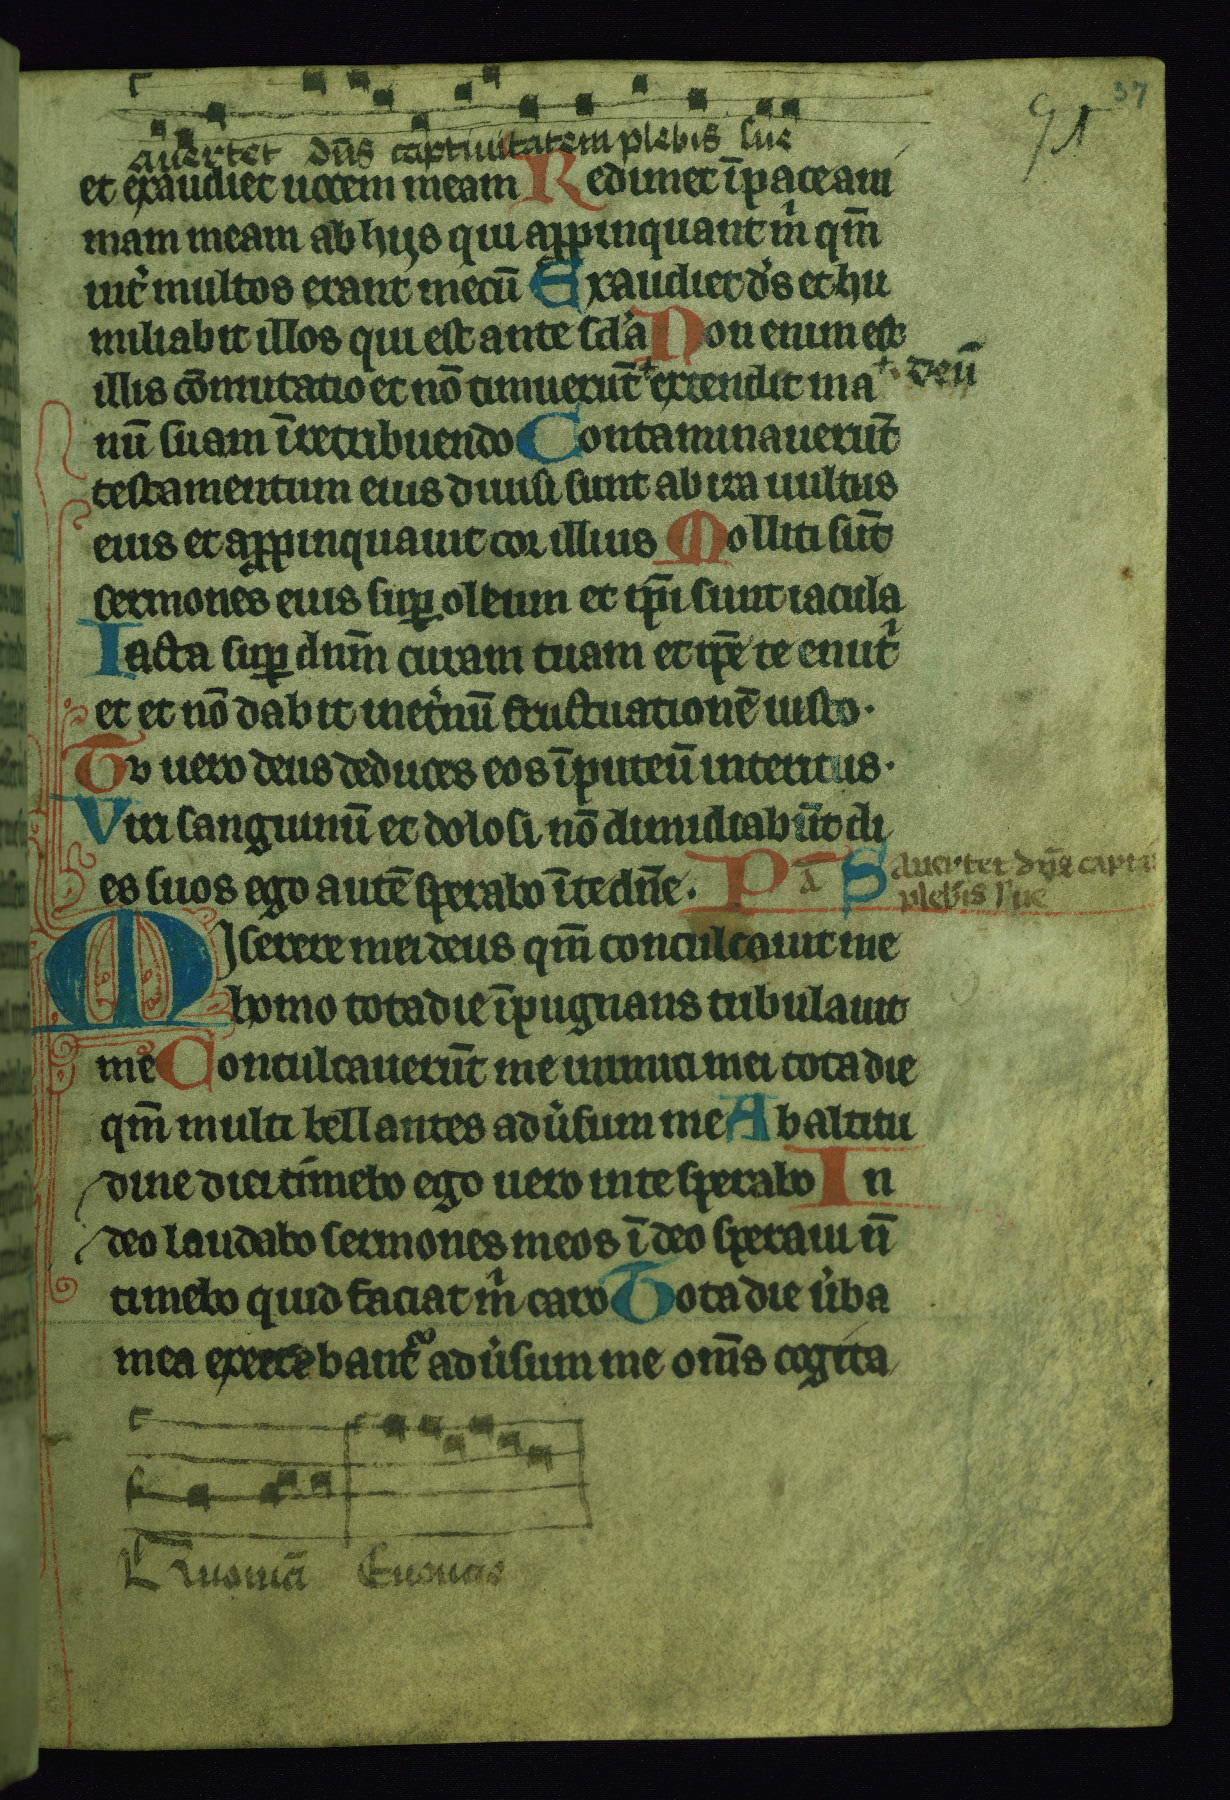 37
91
auertet dn̄s captiuitatem plebis sue
et exaudiet uocem meam Redimet ī pace ani
mam meam ab hijs qui app̄inquant m̄ qm̄
int̄ multos erant mecū Exaudiet ds̄ et hu
miliabit illos qui est ante scl̄a Non enim est
illis cōmutatio et nō timuerūt + extendit ma + deū
nū suam ī retribuendo Contaminauerūt
testamentum eius diuisi sunt ab ira uultus
eius et app̄inquauit cor illius Molliti sūt
sermones eius sup̄ oleum et ip̄i sunt iacula
Iacta sup̄ dnm̄ curam tuam et ip̄e te enut̄
et et nō dabit inet̄nū fluctuationē iusto.
Tv uero deus deduces eos ī puteū interitus.
Viri sanguinū et dolosi nō dimidiabūt di
es suos ego autē sperabo ī te dn̄e. P ā S auertet dn̄s capti
plebis sue
Miserere mei deus qm̄ conculcauit me
homo tota die īpugnans tribulauit
me Conculcauerūt me inimici mei tota die
qm̄ multi bellantes adūsum me Ab altitu
dine diei timebo ego uero in te sperabo In
deo laudabo sermones meos ī deo speraui ñ
timebo quid faciat m̄ caro Tota die ūba
mea execrabant̄ adūsum me oms̄ cogita
Euouae